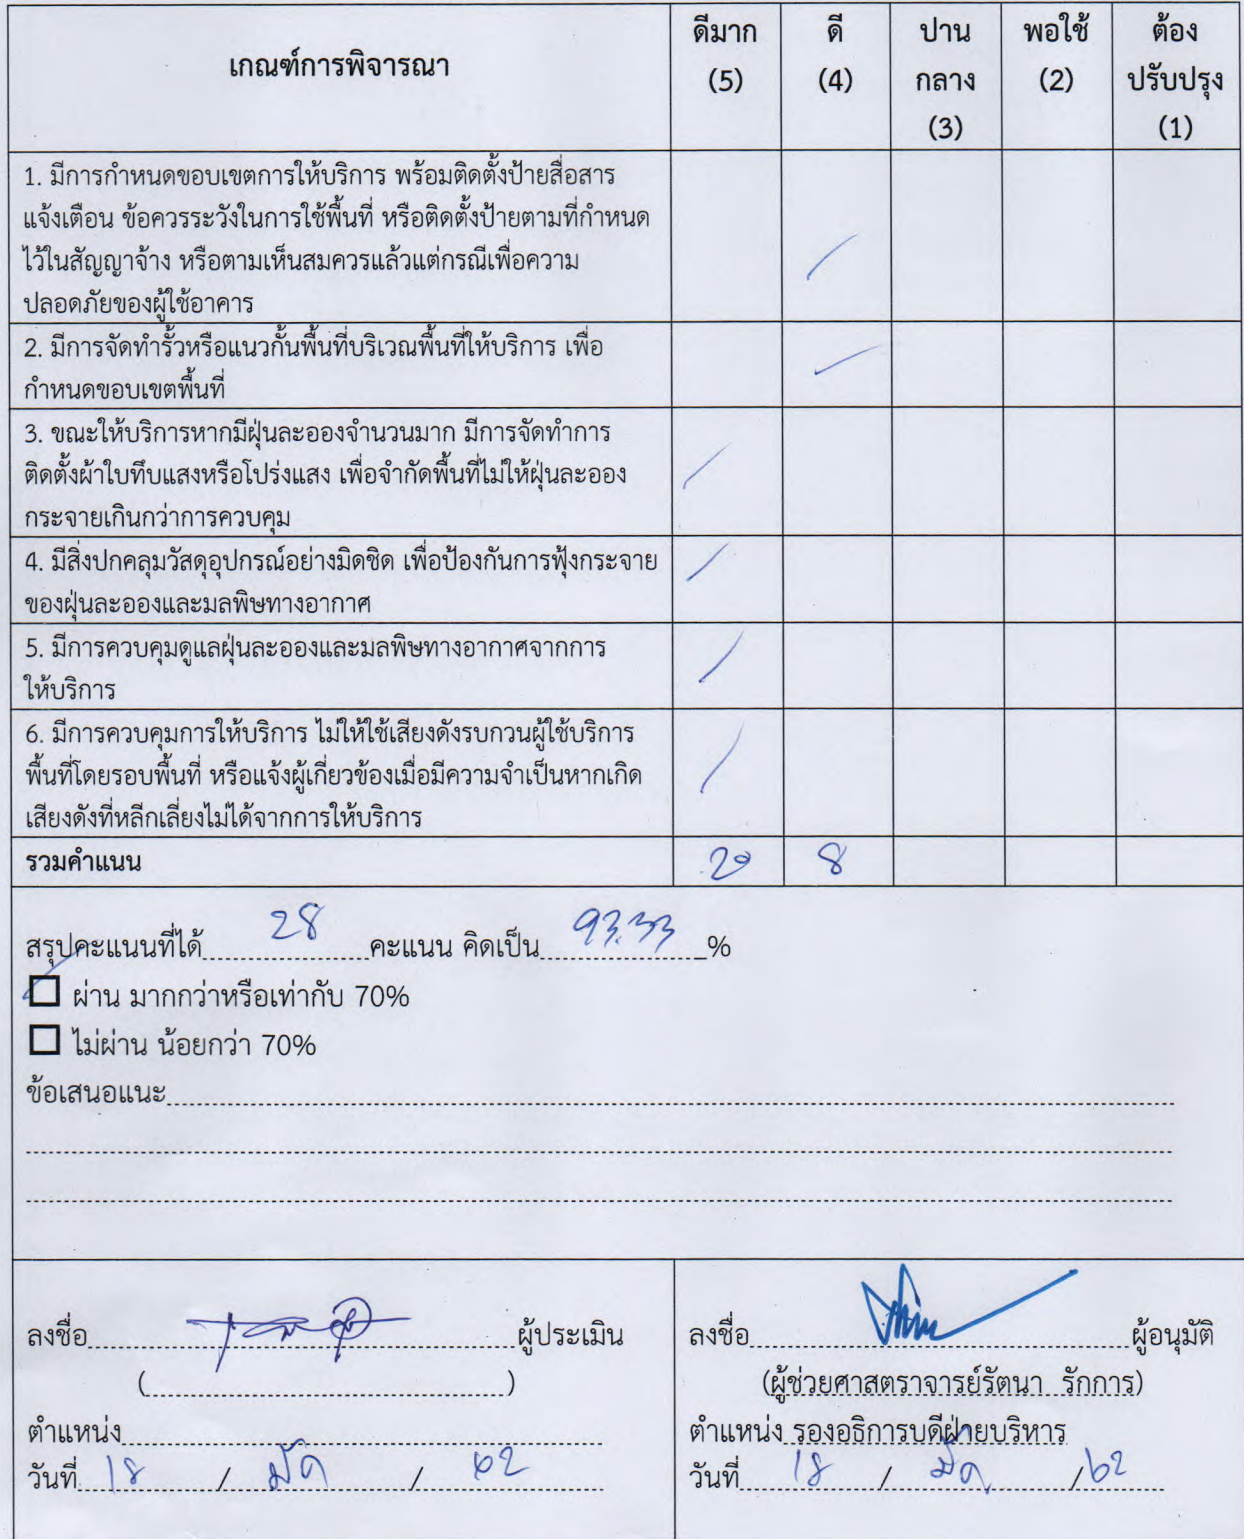 เกณฑ์การพิจารณา
ดีมาก
(5)
ดี
(4)
ปาน
กลาง
(3)
พอใช้
(2)
ต้อง
ปรับปรุง
(1)
1. มีการกำหนดขอบเขตการให้บริการ พร้อมติดตั้งป้ายสื่อสาร
แจ้งเตือน ข้อควรระวังในการใช้พื้นที่ หรือติดตั้งป้ายตามที่กำหนด
ไว้ในสัญญาจ้าง หรือตามเห็นสมควรแล้วแต่กรณีเพื่อความ
ปลอดภัยของผู้ใช้อาคาร
2. มีการจัดทำรั้วหรือแนวกั้นพื้นที่บริเวณพื้นที่ให้บริการ เพื่อ
กำหนดขอบเขตพื้นที่
3. ขณะให้บริการหากมีฝุ่นละอองจำนวนมาก มีการจัดทำการ
ติดตั้งผ้าใบทึบแสงหรือโปร่งแสง เพื่อจำกัดพื้นที่ไม่ให้ฝุ่นละออง
กระจายเกินกว่าการควบคุม
4. มีสิ่งปกคลุมวัสดุอุปกรณ์อย่างมิดชิด เพื่อป้องกันการฟุ้งกระจาย
ของฝุ่นละอองและมลพิษทางอากาศ
5. มีการควบคุมดูแลฝุ่นละอองและมลพิษทางอากาศจากการ
ให้บริการ
6. มีการควบคุมการให้บริการ ไม่ให้ใช้เสียงดังรบกวนผู้ใช้บริการ
พื้นที่โดยรอบพื้นที่ หรือแจ้งผู้เกี่ยวข้องเมื่อมีความจำเป็นหากเกิด
เสียงดังที่หลีกเลี่ยงไม่ได้จากการให้บริการ
รวมคำแนน 20 8
สรุปคะแนนที่ได้ 28 คะแนน คิดเป็น 93.33 %
ผ่าน มากกว่าหรือเท่ากับ 70%
ไม่ผ่าน น้อยกว่า 70%
ข้อเสนอแนะ
ลงชื่อ ผู้ประเมิน
( )
ตำแหน่ง
วันที่ 18 / มีค / 62
ลงชื่อ ผู้อนุมัติ
(ผู้ช่วยศาสตราจารย์รัตนา รักการ)
ตำแหน่ง รองอธิการบดีฝ่ายบริหาร
วันที่ 18 / มีค / 62